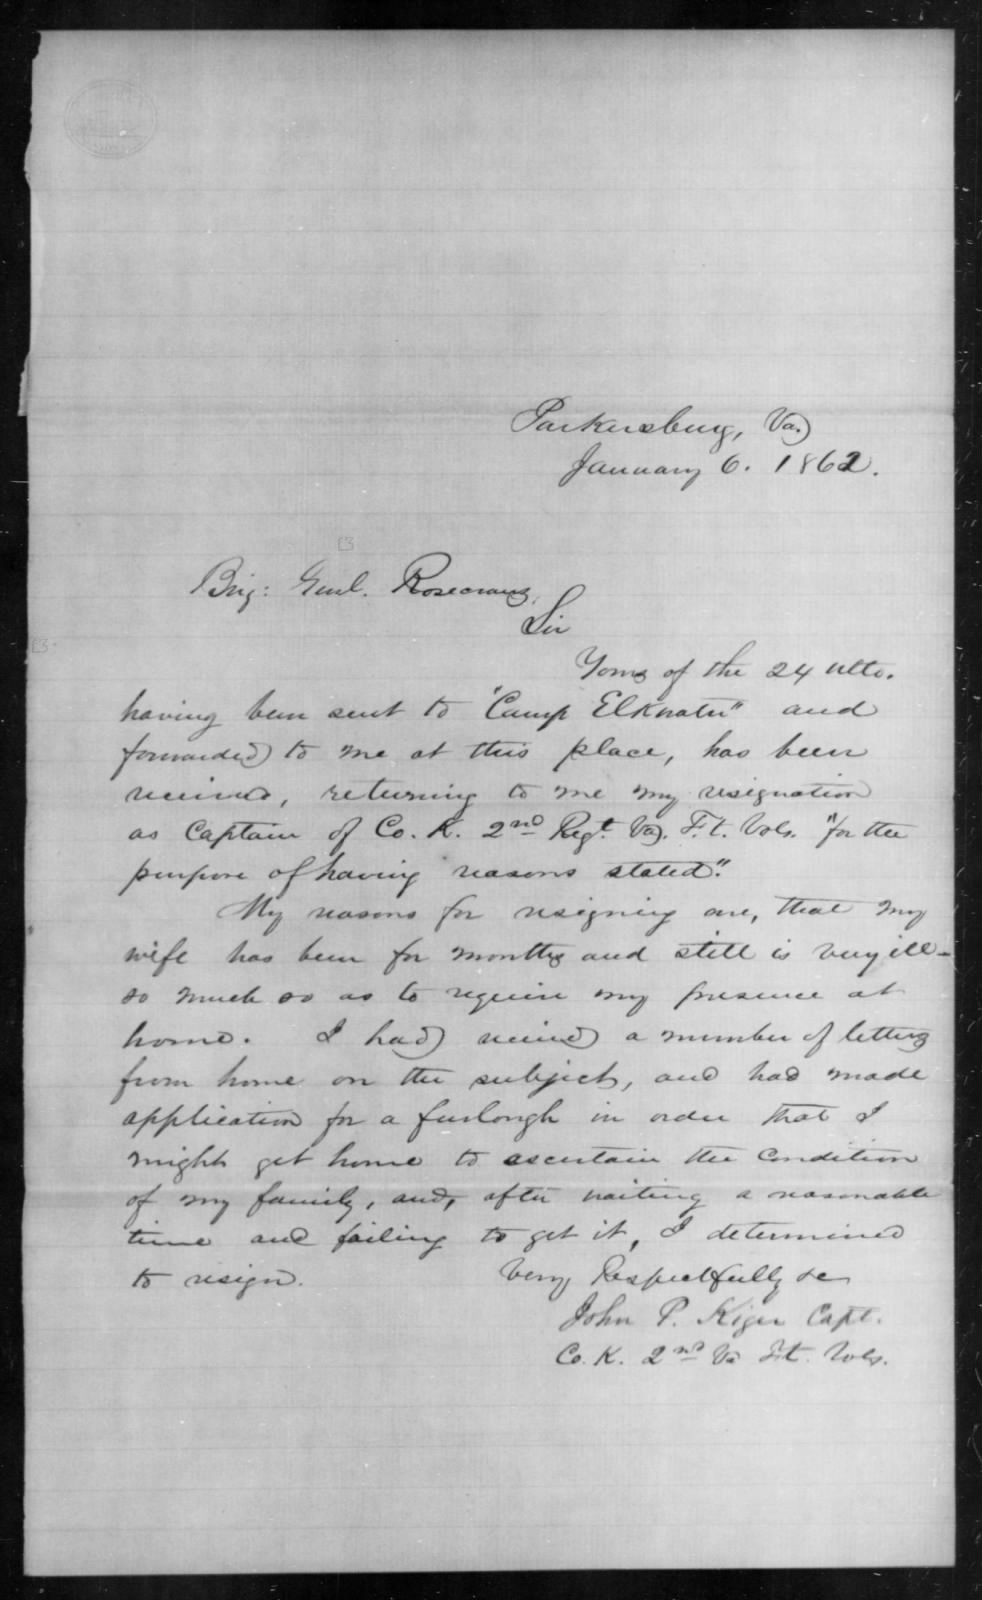 Parkersburg, Va.
January 6. 1862.
Brig: Genl. Rosecrans,
Sir
Yours of the 24 ulto.
having been sent to "Camp Elkwater" and
forwarded to me at this place, has been
received, returning to me my resignation
as Captain of Co. K. 2nd Regt. Va. F.t. Vols. "for the
purpose of having reasons stated."
My reasons for resigning are, that my
wife has been for months and still is very ill-
so much so as to require my presence at
home. I had received a number of letters
from home on the subject, and had made
application for a furlough in order that I
might get home to ascertain the condition
of my family, and, after waiting a reasonable
time and failing to get it, I determined
to resign. Very Respectfully &c
John P. Kiger Capt.
Co. K. 2nd Va Ft. Vols.